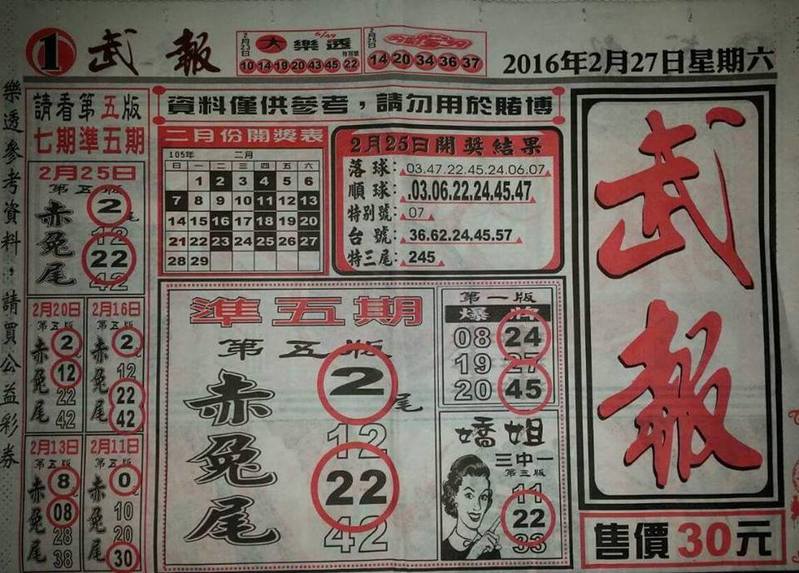 1 武報
2月23日 大樂透 6/49 特別號
10 14 19 20 43 45 22
2月25日
14 20 34 36 37
2016年2月27日星期六
樂透參考資料，請買公益彩券
請看第五版
七期準五期
資料僅供參考，請勿用於賭博
2月25日
第五版
赤兔尾
2
12
22
42
二月份開獎表
105年 二月
日 一 二 三 四 五 六
1 2 3 4 5 6
7 8 9 10 11 12 13
14 15 16 17 18 19 20
21 22 23 24 25 26 27
28 29
2月25日開獎結果
落球:03.47.22.45.24.06.07
順球:03.06.22.24.45.47
特別號:07
台號:36.62.24.45.57
特三尾:245
武報
2月20日
第五版
赤兔尾
2
12
22
42
2月16日
第五版
赤兔尾
2
12
22
42
2月13日
第五版
赤兔尾
8
08
28
38
2月11日
第五版
赤兔尾
0
10
20
30
準五期
第五版
赤兔尾
2尾
12
22
42
第一版
爆
08 24
19 27
20 45
嬌姐
三中一
第三版
11
22
33
售價30元